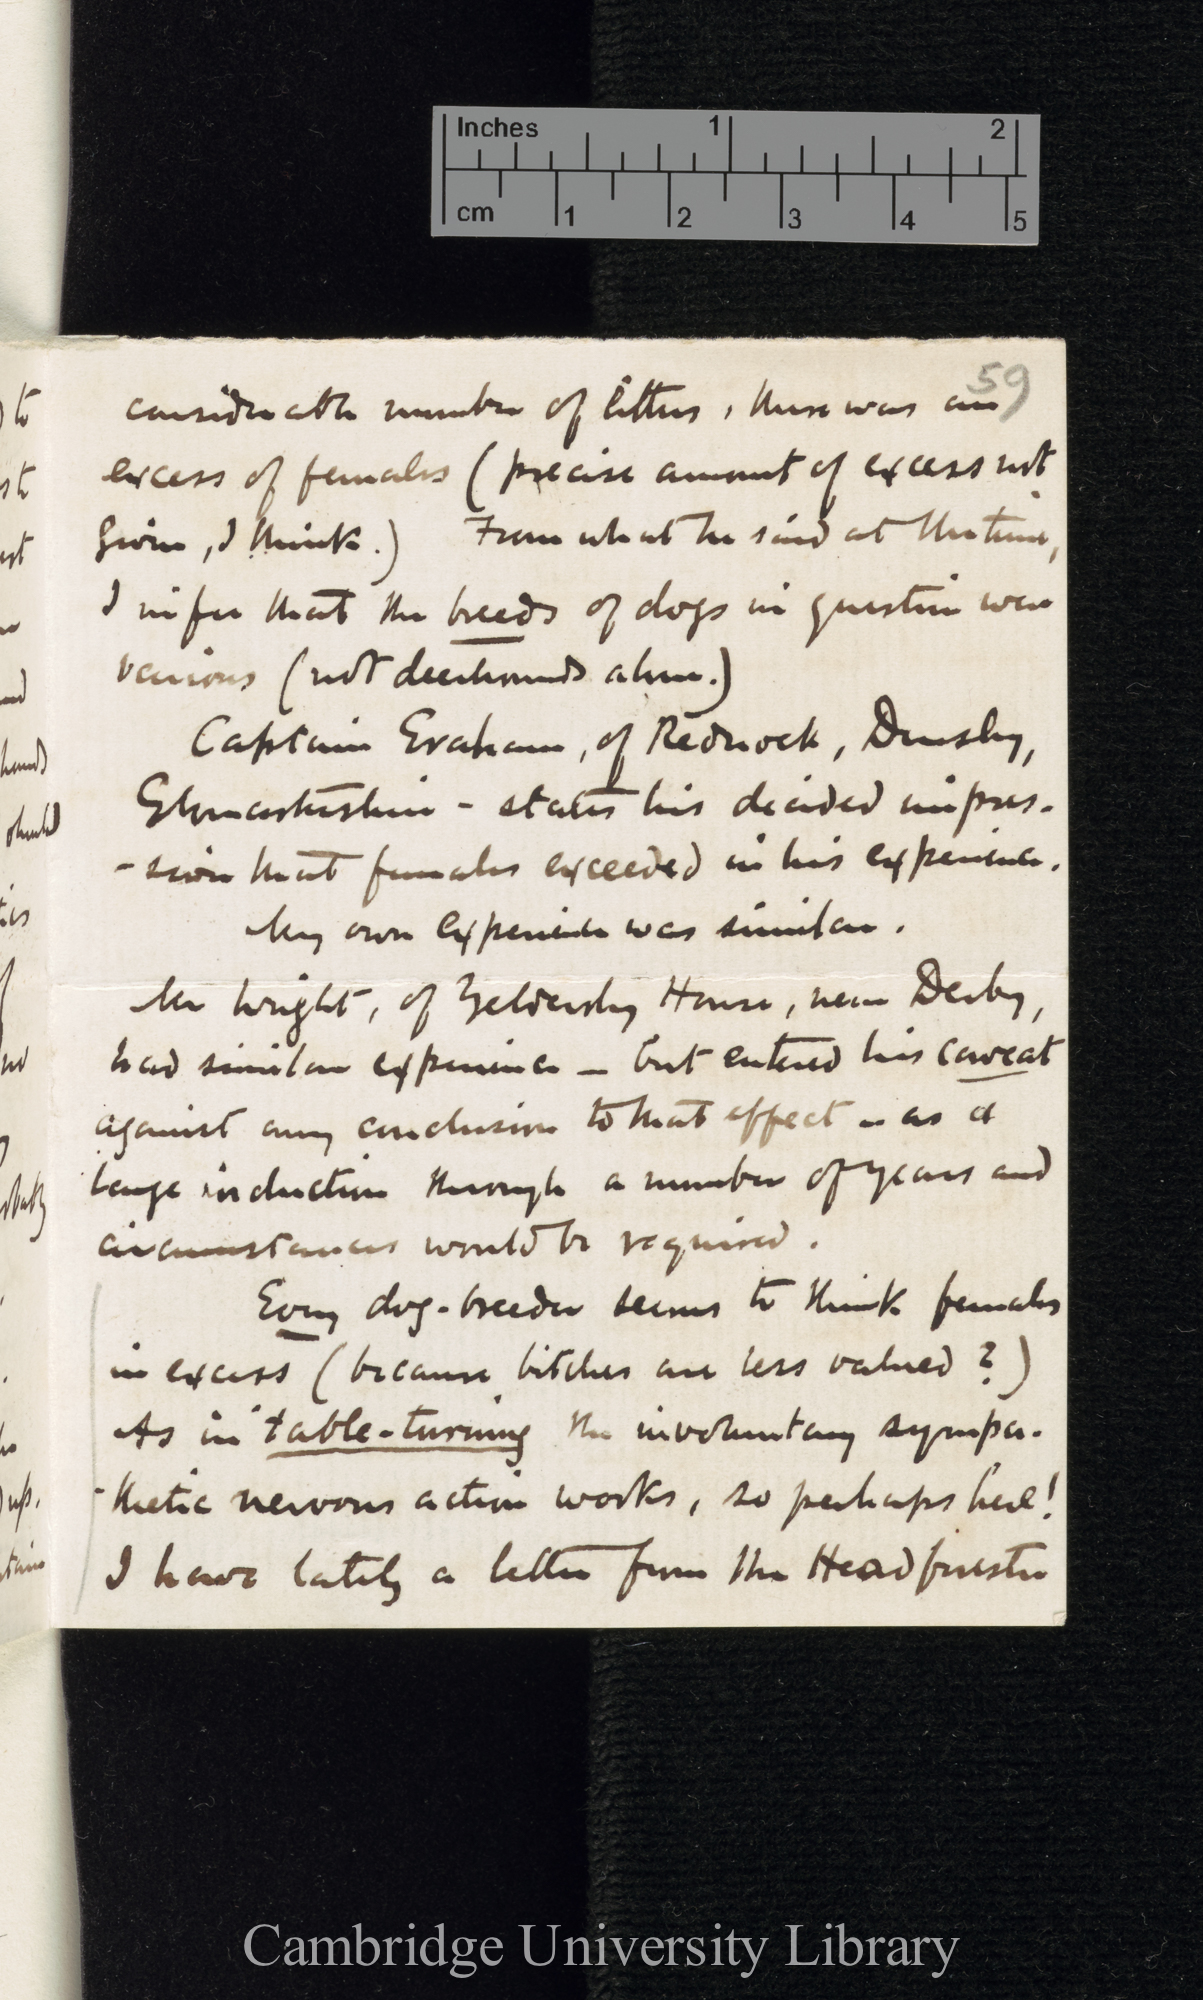 Inches 1 2
cm 1 2 3 4 5
59
considerable number of litters, there was an
excess of females (precise amount of excess not
given, I think.) From what he said at the time,
I infer that the breeds of dogs in question were
various (not deerhounds alone.)
Captain Graham, of Rednock, Dursley,
Gloucestershire - states his decided impres-
-sion that females exceeded in his experience.
My own experience was similar.
Mr Wright, of Yeldersley House, near Derby,
had similar experience - but entered his caveat
against any conclusion to that effect - as a
large induction through a number of years and
circumstances would be required.
Every dog-breeder seems to think females
in excess (because bitches are less valued?)
As in table-turning the involuntary sympa-
-thetic nervous action works, so perhaps here!
I have lately a letter from the Head forester
Cambridge University Library